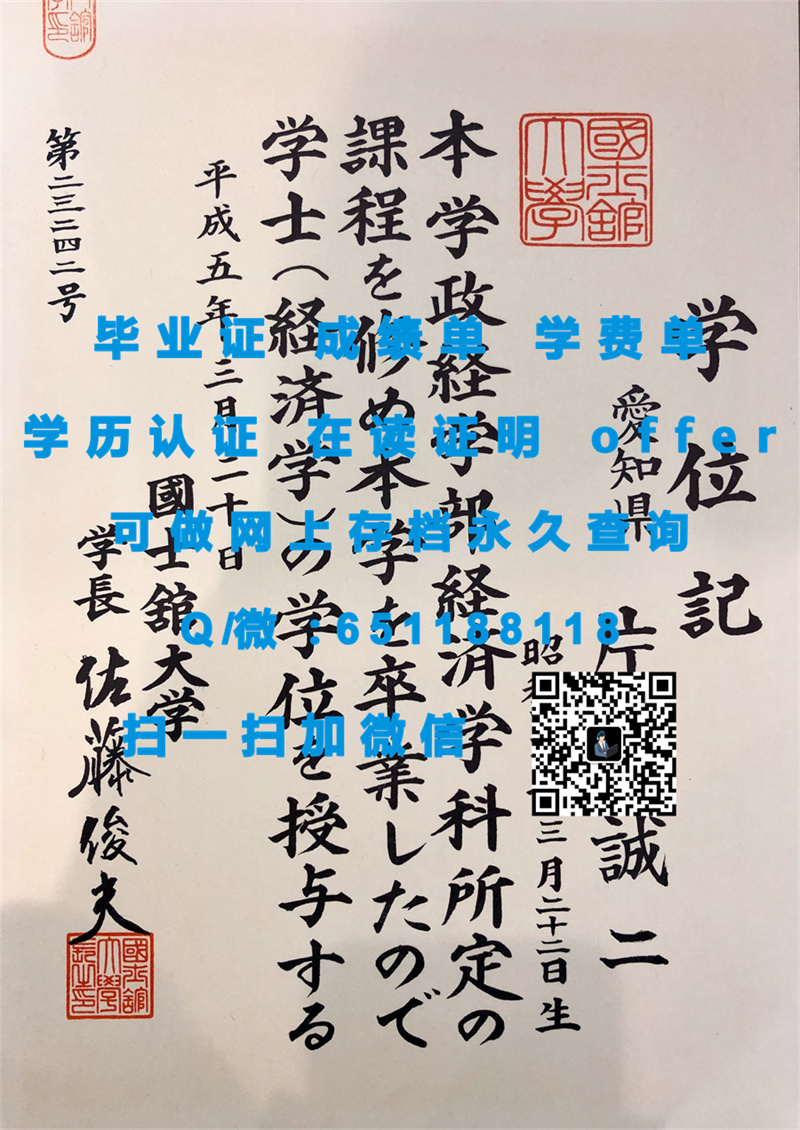 学位記
愛知県
片
誠二
昭
三月二十二日生
國士舘大學
本学政経学部経済学科所定の
課程を修め本学を卒業したので
学士(経済学)の学位を授与する
平成五年三月二十日
國士舘大学
学長 佐藤俊夫
第二三二四二号
毕业证 成绩单 学费单
学历认证 在读证明 offer
可做网上存档永久查询
Q/微:651188118
扫一扫加微信